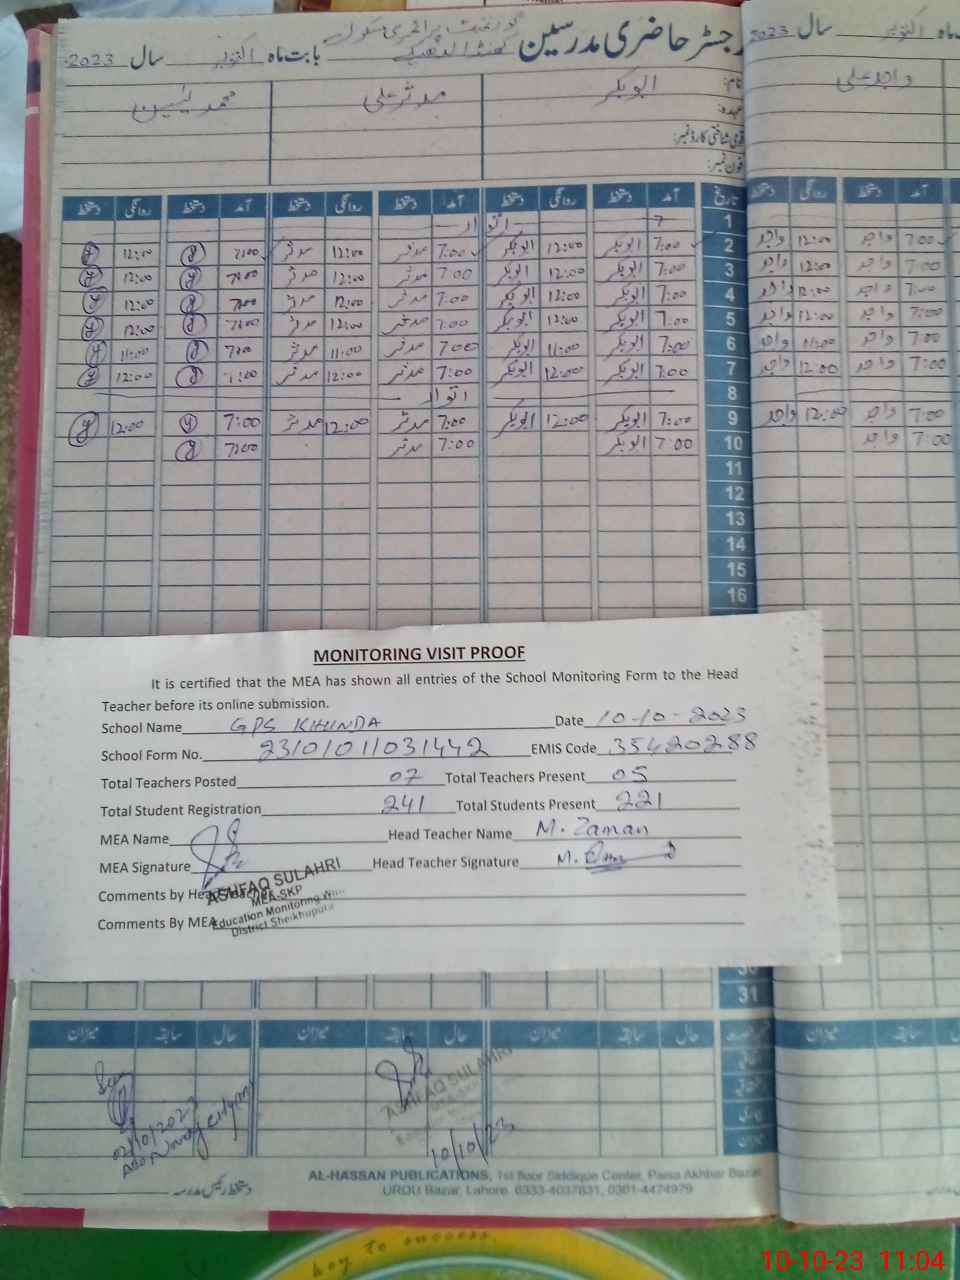 رجسٹر حاضری مدرسین گورنمنٹ پرائمری سکول
بابت ماہ اکتوبر سال 2023
سال 2023 ماہ اکتوبر
نام: ابوبکر مدثر علی محمد یٰسین
واجد علی
عہدہ:
قومی شناختی کارڈ نمبر:
فون نمبر:
تاریخ آمد دستخط روانگی دستخط آمد دستخط روانگی دستخط آمد دستخط روانگی دستخط
آمد دستخط روانگی دستخط
1 اتوار
2 7:00 ابوبکر 12:00 ابوبکر 7:00 مدثر 12:00 مدثر 7:00 12:00
7:00 واجد 12:00 واجد
3 7:00 ابوبکر 12:00 ابوبکر 7:00 مدثر 12:00 مدثر 7:00 12:00
7:00 واجد 12:00 واجد
4 7:00 ابوبکر 12:00 ابوبکر 7:00 مدثر 12:00 مدثر 7:00 12:00
7:00 واجد 12:00 واجد
5 7:00 ابوبکر 12:00 ابوبکر 7:00 مدثر 12:00 مدثر 7:00 12:00
7:00 واجد 12:00 واجد
6 7:00 ابوبکر 11:00 ابوبکر 7:00 مدثر 11:00 مدثر 7:00 11:00
7:00 واجد 11:00 واجد
7 7:00 ابوبکر 12:00 ابوبکر 7:00 مدثر 12:00 مدثر 7:00 12:00
7:00 واجد 12:00 واجد
8 اتوار
9 7:00 ابوبکر 12:00 ابوبکر 7:00 مدثر 12:00 مدثر 7:00 12:00
7:00 واجد 12:00 واجد
10 7:00 ابوبکر 7:00 مدثر 7:00
7:00 واجد
11
12
13
14
15
16
MONITORING VISIT PROOF
It is certified that the MEA has shown all entries of the School Monitoring Form to the Head
Teacher before its online submission.
School Name GPS KHINDA Date 10-10-2023
School Form No. 23101011031442 EMIS Code 35420288
Total Teachers Posted 07 Total Teachers Present 05
Total Student Registration 241 Total Students Present 221
MEA Name Head Teacher Name M. Zaman
MEA Signature Head Teacher Signature M.
Comments by Head Teacher
Comments By MEA
ASHFAQ SULAHRI
MEA-SKP
Education Monitoring Wing
District Sheikhupura
30
31
حال سابقہ میزان حال سابقہ میزان حال سابقہ میزان
سابقہ میزان
ASHFAQ SULAHRI
02/10/2023
10/10/23
دستخط رئیس مدرسہ
AL-HASSAN PUBLICATIONS, 1st floor Siddique Center, Paisa Akhbar Bazar,
URDU Bazar, Lahore. 0333-4037831, 0301-4474979
key to success
10-10-23 11:04